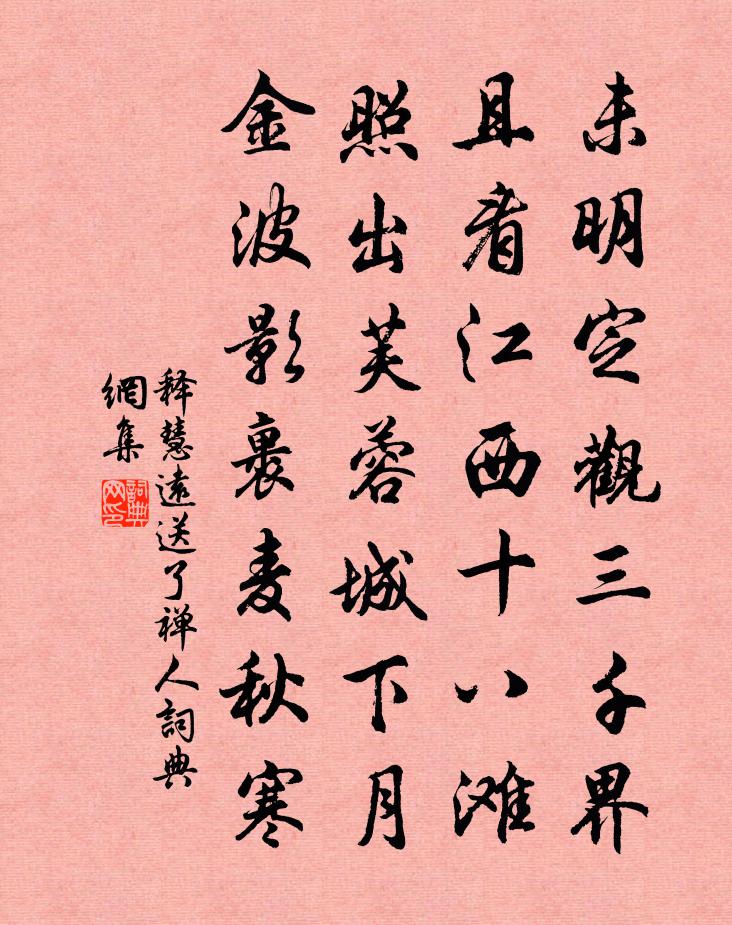 未明定觀三千界
且看江西十八滩
照出芙蓉城下月
金波影裏麦秋寒
释慧遠送了禅人詞典
網集
詞典
网印